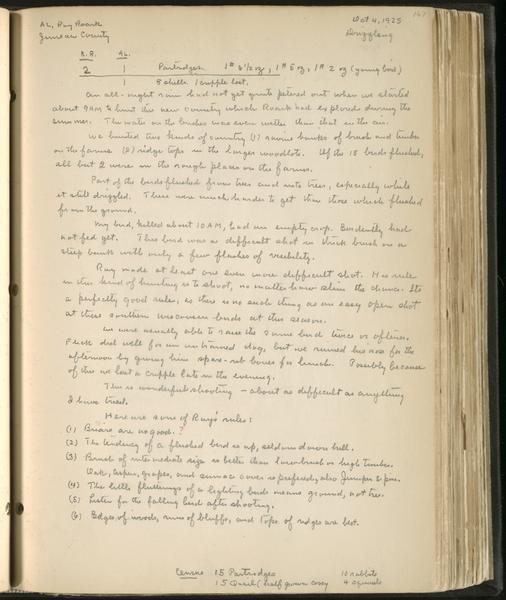 AL, Ray Roark
Juneau County
Oct 4, 1925
Drizzling
167
R.R. AL.
2 1 Partridges 1# 6 1/2 oz, 1# 5 oz, 1# 2 oz (young bird)
8 shells 1 cripple lost.
An all-night rain had not yet quite petered out when we started
about 9 AM to hunt the new country which Roark had explored during the
summer. The water on the bushes was even wetter than that in the air.
We hunted two kinds of country (1) ravine banks of brush and timber
on the farms (2) ridge tops in the larger woodlots. Of the 15 birds flushed,
all but 2 were in the rough places on the farms.
Part of the birds flushed from trees and into trees, especially while
it still drizzled. These were much harder to get than those which flushed
from the ground.
My bird, killed about 10 AM, had an empty crop. Evidently had
not fed yet. This bird was a difficult shot in thick brush on a
steep bank with only a few flashes of visibility.
Ray made at least one even more difficult shot. His rule
in this kind of hunting is to shoot, no matter how slim the chance. It's
a perfectly good rule, as there is no such thing as an easy open shot
at these southern Wisconsin birds at this season.
We were usually able to raise the same bird twice or oftener.
Flick did well for an untrained dog, but we ruined his nose for the
afternoon by giving him spare-rib bones for lunch. Possibly because
of this we lost a cripple late in the evening.
This is wonderful shooting - about as difficult as anything
I have tried.
Here are some of Ray's rules:
(1) Briars are no good.
(2) The tendency of a flushed bird is up, seldom down hill.
(3) Brush of intermediate size is better than low brush or high timber.
Oak, aspen, grapes, and sumac cover is preferred, also Juniper & pine.
(4) The little flutterings of a lighting bird means ground, not tree.
(5) Listen for the falling bird after shooting.
(6) Edges of woods, rims of bluffs, and tops of ridges are best.
Census 15 Partridges 10 rabbits
15 Quail (half grown covey 4 squirrels